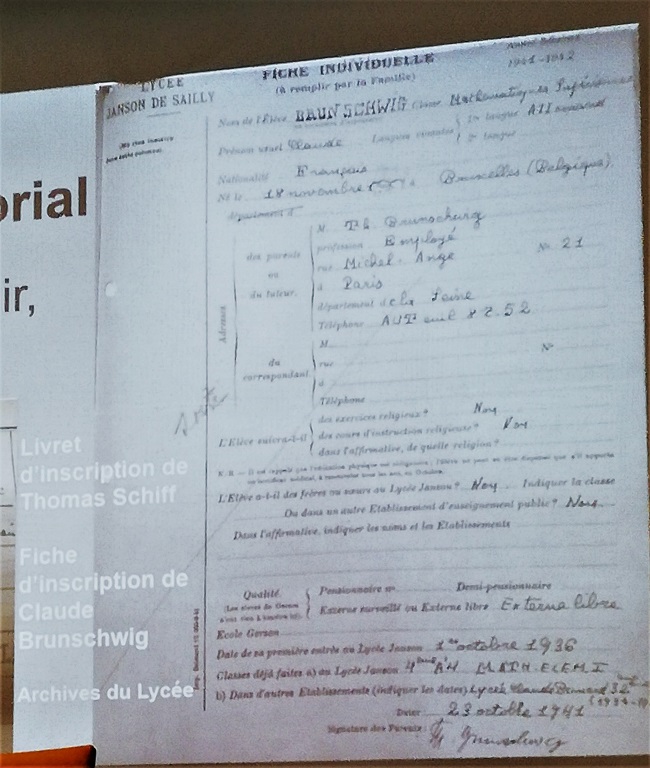 orial
ir,
Livret
d'inscription de
Thomas Schiff
Fiche
d'inscription de
Claude
Brunschwig
Archives du Lycée
LYCÉE
JANSON DE SAILLY
FICHE INDIVIDUELLE
(à remplir par la Famille)
1941-1942
Nom de l'Élève BRUNSCHWIG Classe Mathématiques Supérieures
Prénom usuel Claude Langues vivantes 1re langue Allemand
2e langue
Nationalité Français
Né le 18 novembre à Bruxelles (Belgique).
département d
Adresses
des parents
ou
du tuteur.
M. Th. Brunschwig
profession Employé
rue Michel-Ange No 21
à Paris
département de la Seine
Téléphone AUTeuil 82.52
du
correspondant
M.
rue No
à
Téléphone
L'Élève suivra-t-il
des exercices religieux? Non
des cours d'instruction religieuse? Non
dans l'affirmative, de quelle religion?
L'Élève a-t-il des frères ou sœurs au Lycée Janson? Non Indiquer la classe
Ou dans un autre Établissement d'enseignement public? Non
Dans l'affirmative, indiquer les noms et les Établissements
Qualité.
Pensionnaire Demi-pensionnaire
Externe surveillé ou Externe libre Externe libre
École Gerson
Date de sa première entrée au Lycée Janson 1er octobre 1936
Classes déjà faites a) au Lycée Janson 4ème A'4 MATH-ELEM I
b) Dans d'autres Établissements (indiquer les dates) Lycée Claude Bernard
Dater 23 octobre 1941
Signature des Parents: Th Brunschwig